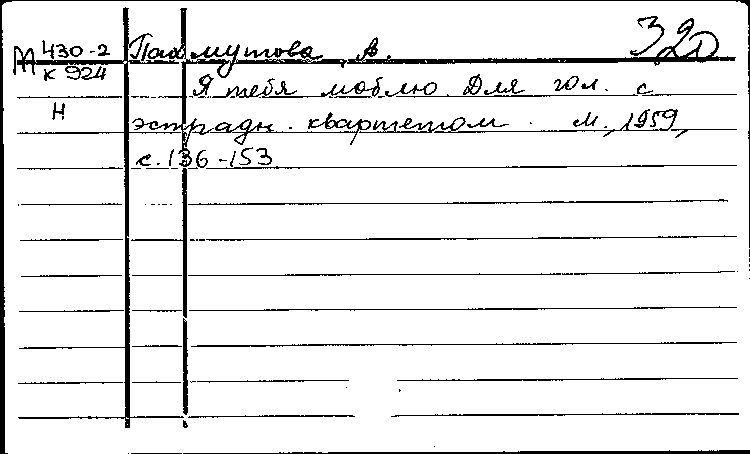 М 430-2 Пахмутова А. 32р
К 924
Я тебя люблю. Для гол. с
Н
эстрадн. квартетом. М., 1959,
с. 136-153